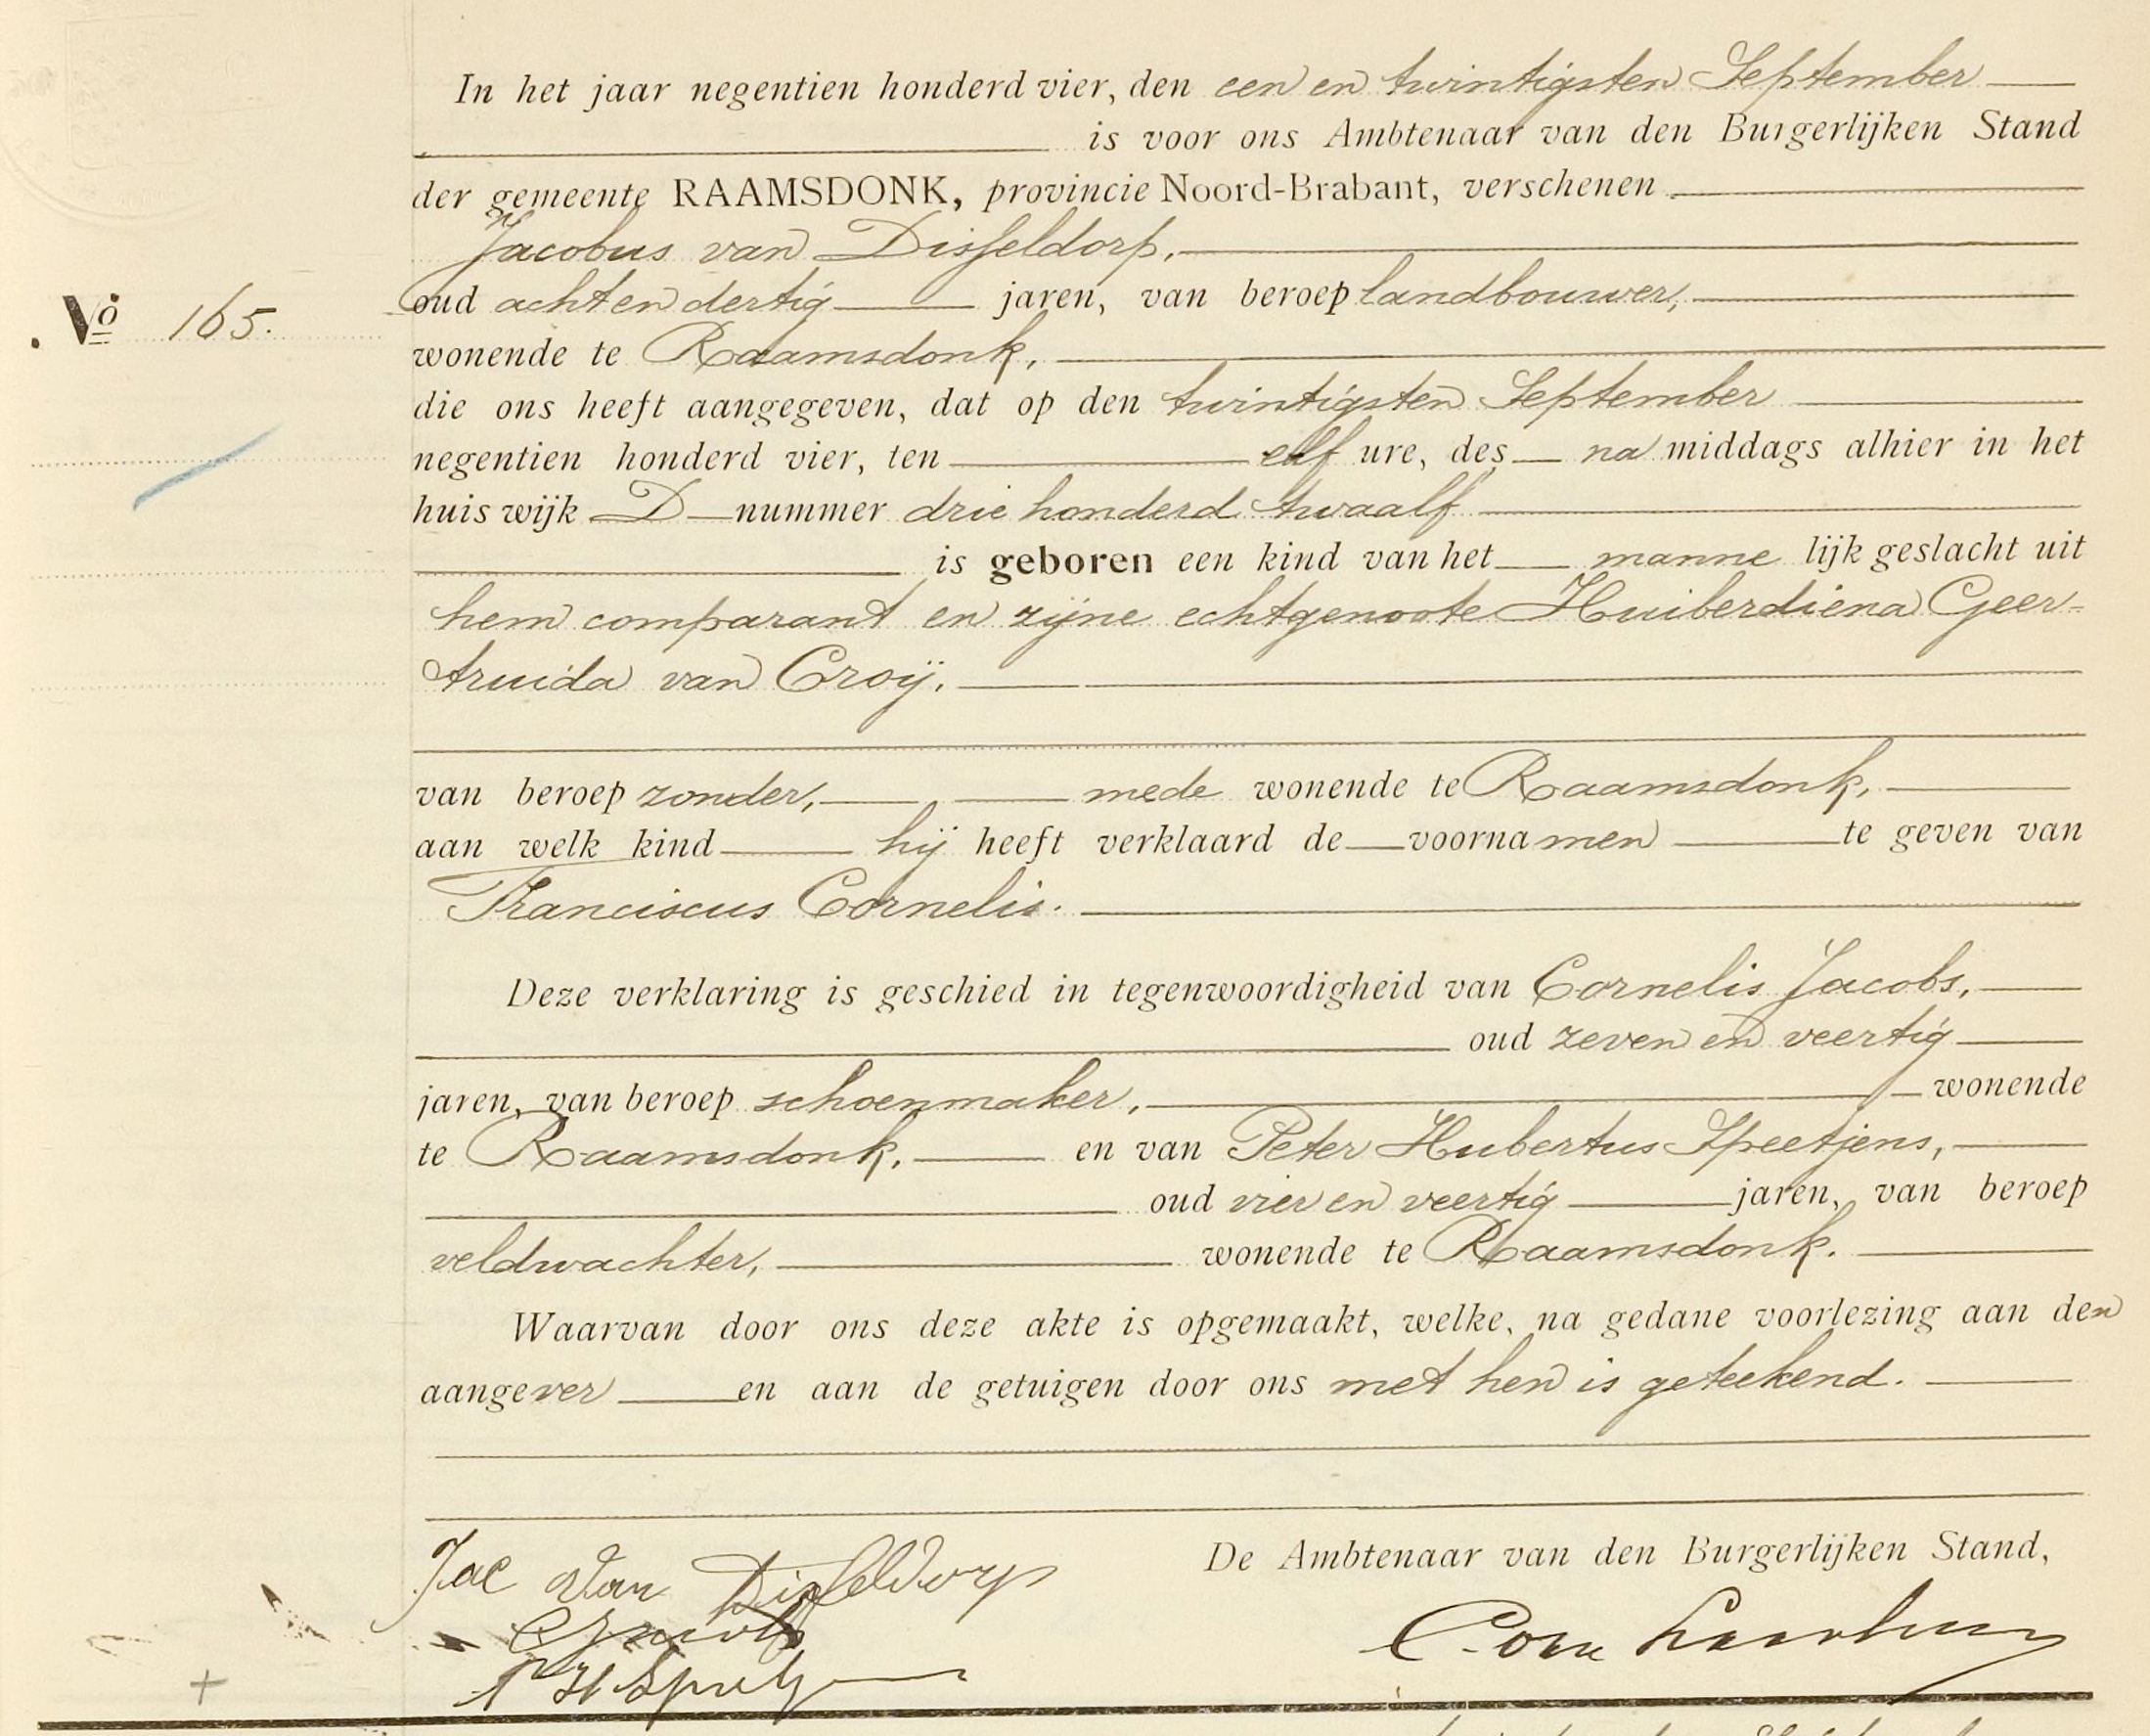 In het jaar negentien honderd vier, den een en twintigsten September
is voor ons Ambtenaar van den Burgerlijken Stand
der gemeente RAAMSDONK, provincie Noord-Brabant, verschenen
Jacobus van Disseldorp,
No 165.
oud acht en dertig jaren, van beroep landbouwer,
wonende te Raamsdonk,
die ons heeft aangegeven, dat op den twintigsten September
negentien honderd vier, ten elf ure, des na middags alhier in het
huis wijk D nummer drie honderd twaalf
is geboren een kind van het manne lijk geslacht uit
hem comparant en zijne echtgenoote Huiberdiena Geer-
truida van Croij,
van beroep zonder, mede wonende te Raamsdonk,
aan welk kind hij heeft verklaard de voornamen te geven van
Franciscus Cornelis.
Deze verklaring is geschied in tegenwoordigheid van Cornelis Jacobs,
oud zeven en veertig
jaren, van beroep schoenmaker, wonende
te Raamsdonk, en van Peter Hubertus Speetjens,
oud vier en veertig jaren, van beroep
veldwachter, wonende te Raamsdonk.
Waarvan door ons deze akte is opgemaakt, welke, na gedane voorlezing aan den
aangever en aan de getuigen door ons met hen is geteekend.
De Ambtenaar van den Burgerlijken Stand,
Jac van Disseldorp